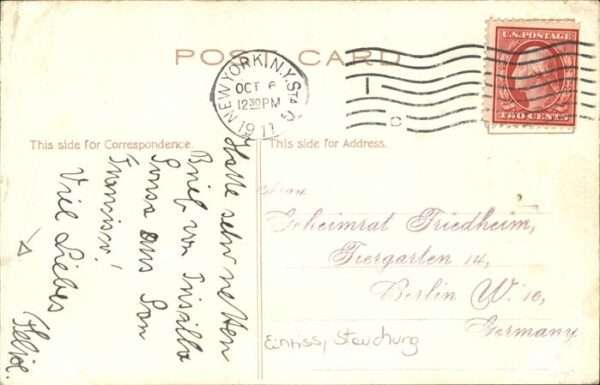 POST CARD
U.S. POSTAGE
TWO CENTS
NEW YORK, N.Y. STA. C
OCT 6
1230 PM
1911
This side for Correspondence.
This side for Address.
Hatte sehr netten
Brief von
aus San
Francisco!
Viel Liebes
Felix.
Geheimrat Friedheim,
Tiergarten 14,
Berlin W. 10,
Germany.